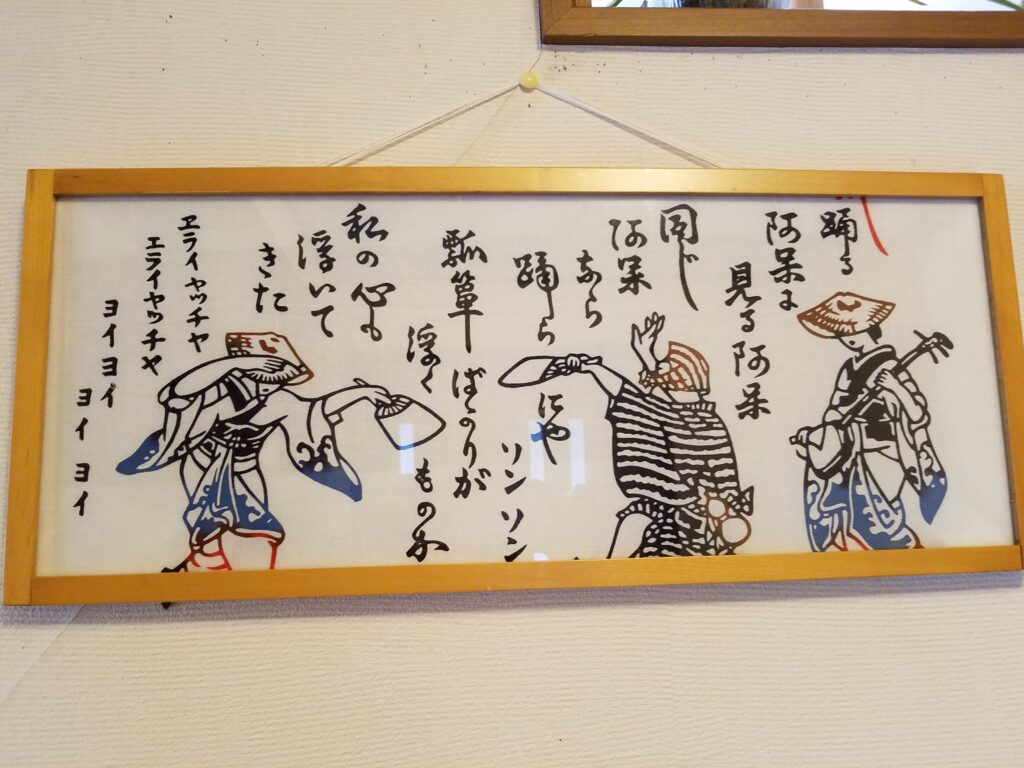 踊る
阿呆に
見る阿呆
同じ
阿呆
なら
踊らにや
ソンソン
瓢箪ばかりが
浮くものか
私の心も
浮いて
きた
ヱライヤッチャ
エライヤッチャ
ヨイヨイ
ヨイヨイ